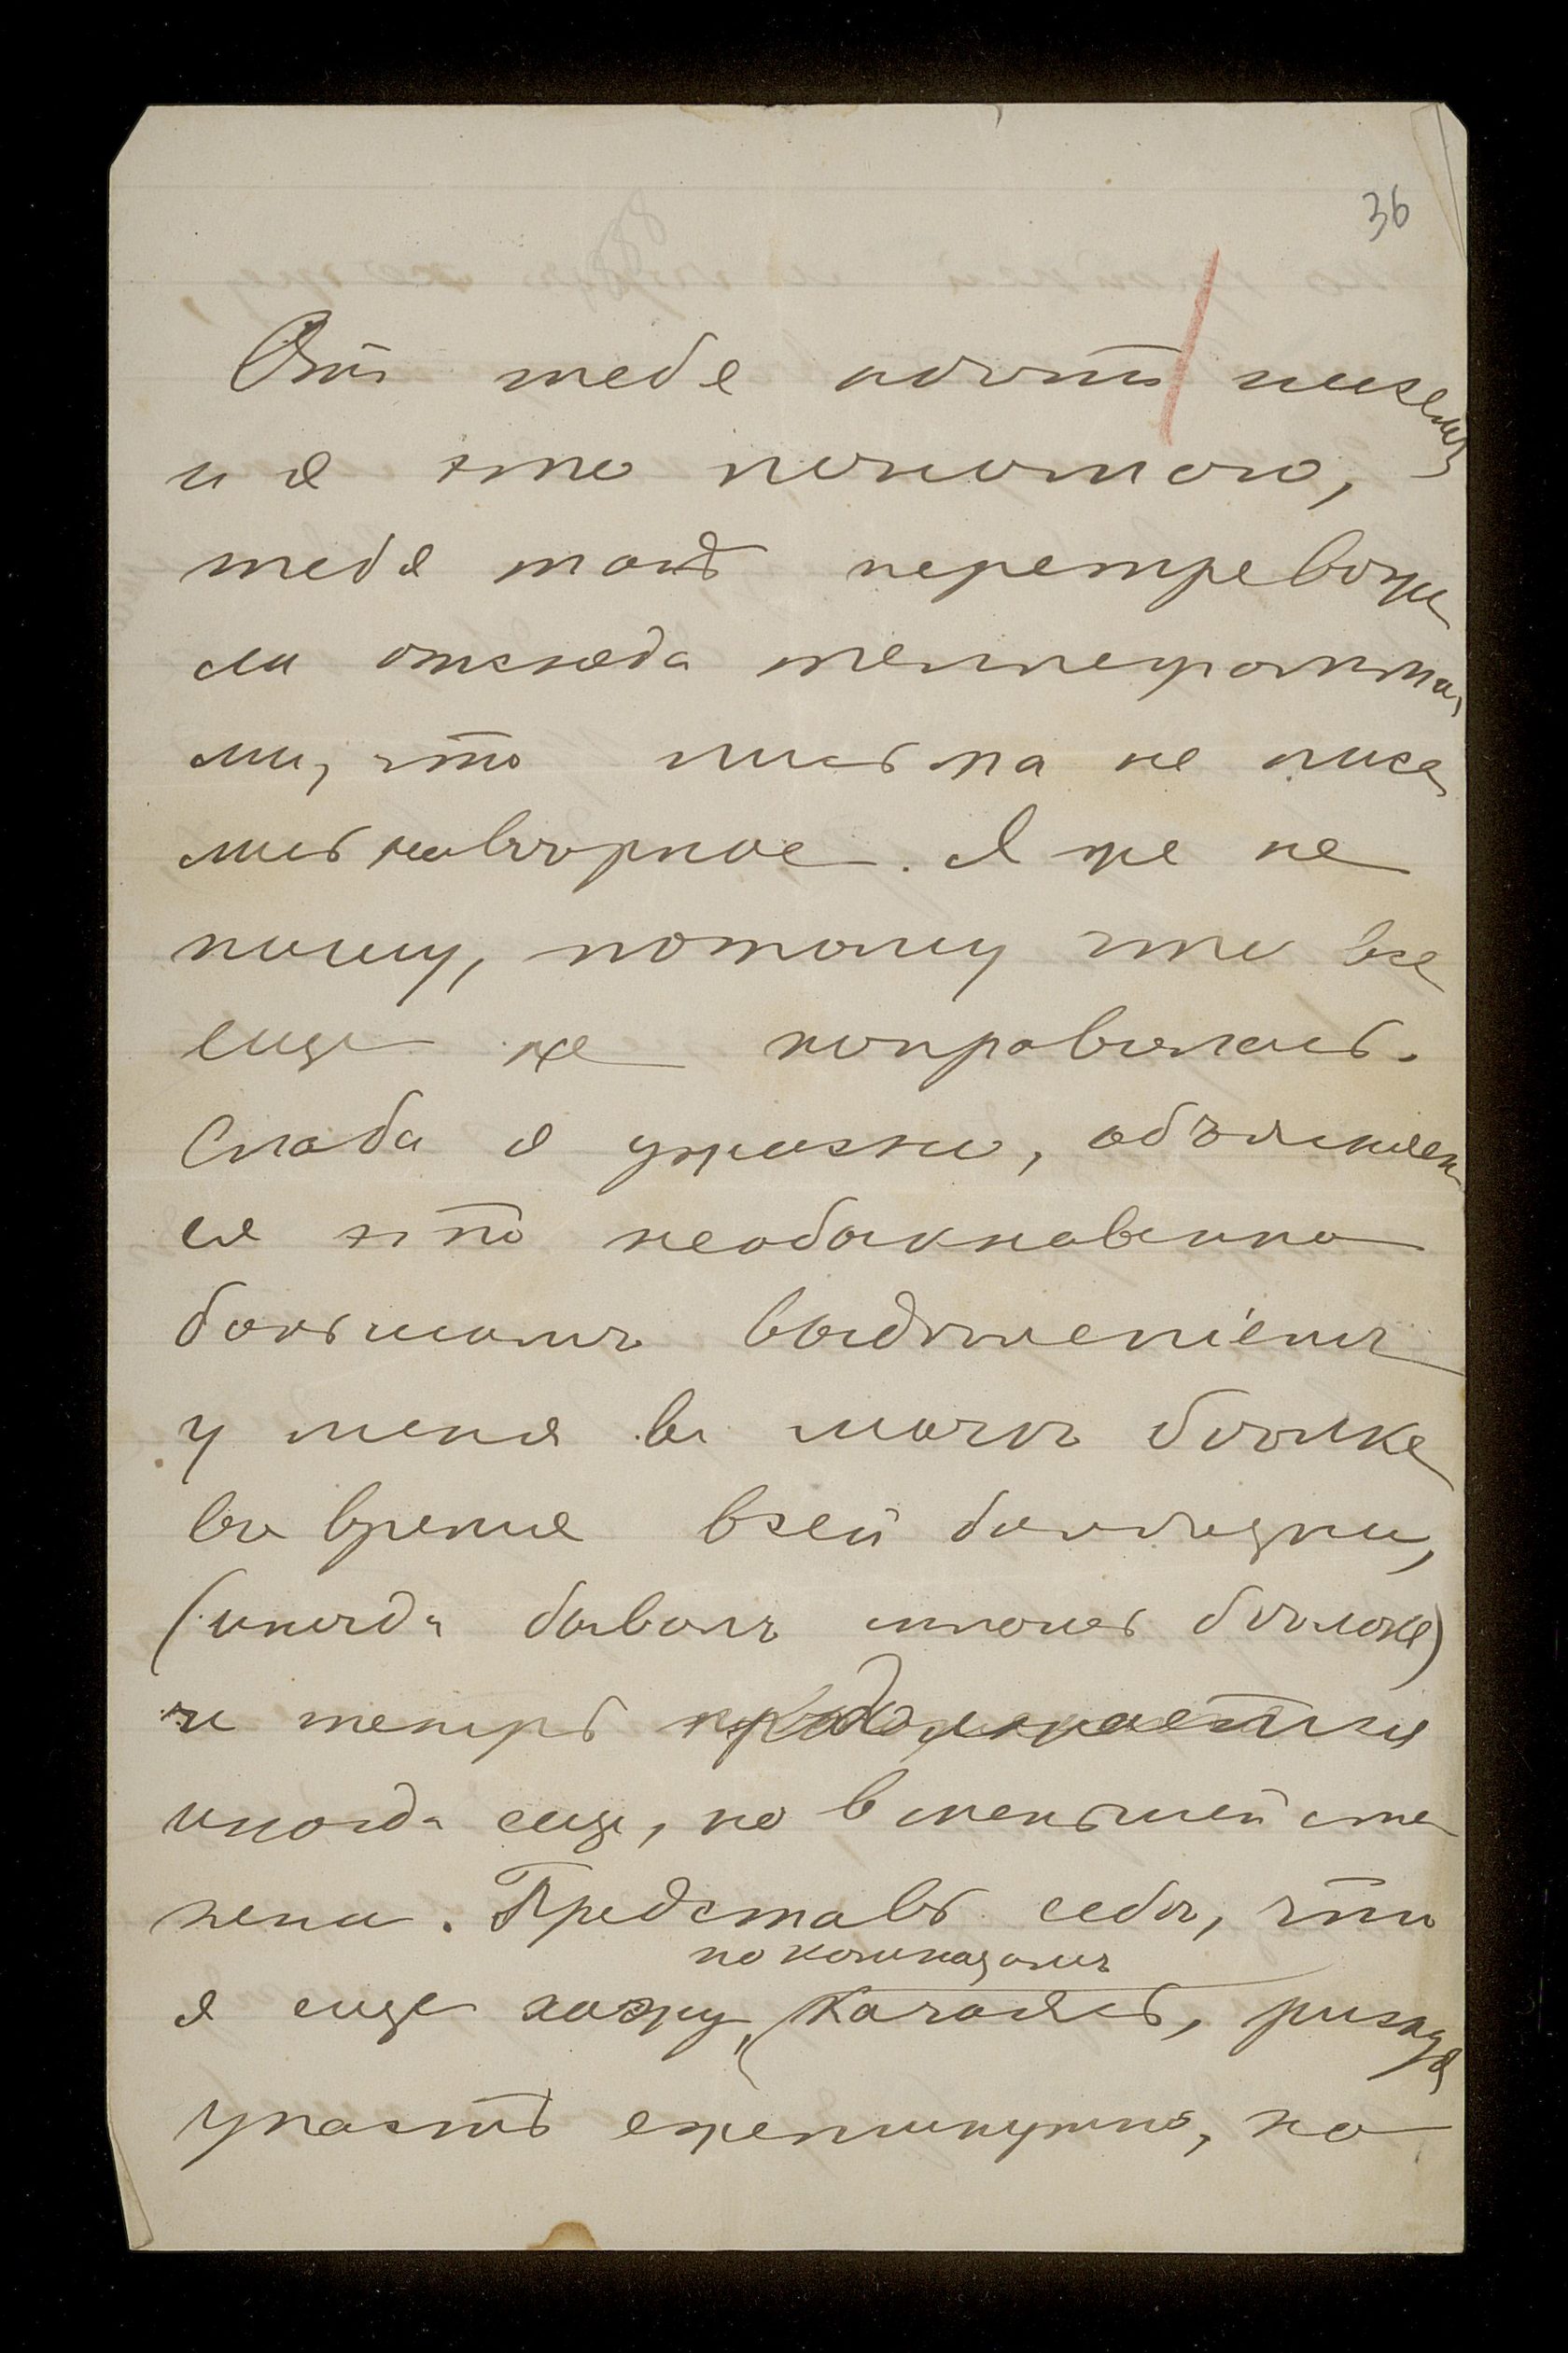 36
Отъ тебя нѣтъ писемъ
и я это понимаю,
тебя такъ перетревожи
ли отсюда телеграмма
ми, что письма не писа
лись навѣрное. Я же не
пишу, потому что все
еще не поправилась.
Слаба я ужасно, объясняет
ся это необыкновенно
большимъ выдѣленіемъ
у меня въ мочѣ бѣлка
во время всей болѣзни,
(иногда бывалъ сплошь бѣлокъ)
и теперь продолжается
иногда еще, но в меньшей сте
пени. Представь себѣ, что
по комнатамъ
я еще хожу, качаясь, рискуя
упасть ежеминутно, но